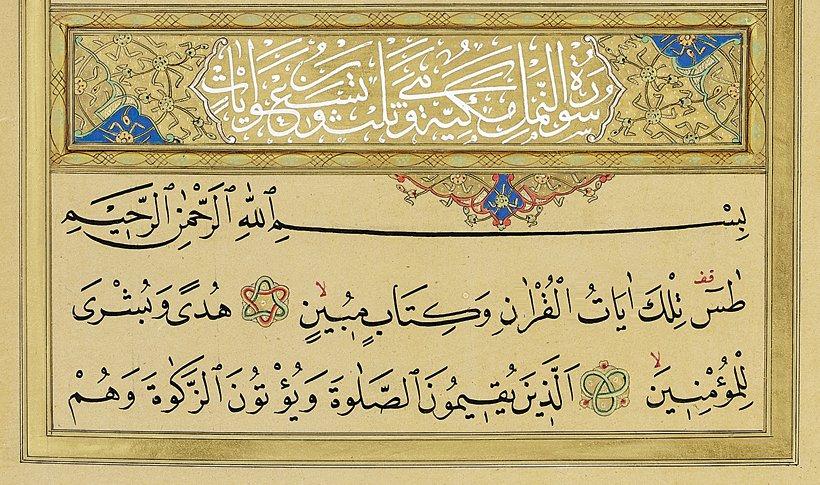 سُورَةُ النَّمْلِ مَكِّيَّةٌ وَهِيَ ثَلٰثٌ وَتِسْعُونَ اٰيَاتٍ
بِسْمِ ٱللهِ ٱلرَّحْمٰنِ ٱلرَّحِيمِ
طٰسٓ قف تِلْكَ اٰيَاتُ الْقُرْاٰنِ وَكِتَابٍ مُبِينٍ لا هُدًى وَبُشْرَى
لِلْمُؤْمِنِينَ لا اَلَّذِينَ يُقِيمُونَ ٱلصَّلٰوةَ وَيُؤْتُونَ ٱلزَّكٰوةَ وَهُمْ